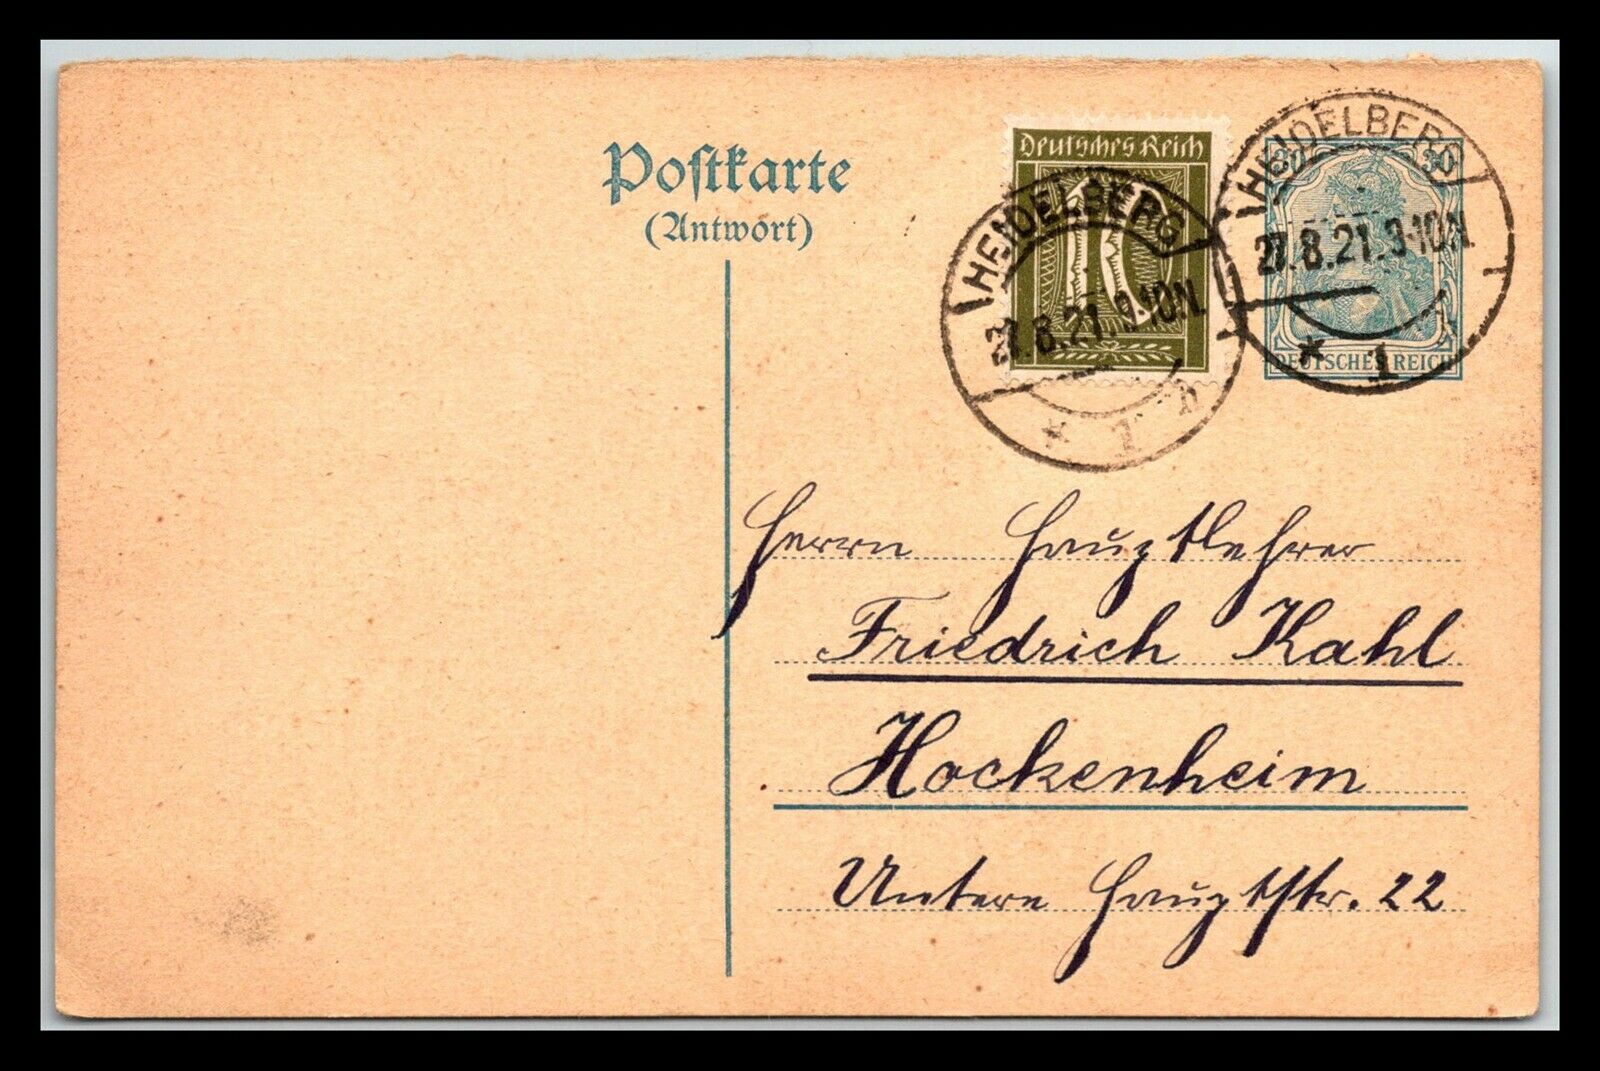 Postkarte
(Antwort)
Deutsches Reich
10
HEIDELBERG
27.8.21.9-10N.
* 1 b
30 30
DEUTSCHES REICH
HEIDELBERG
27.8.21.9-10N.
* 1
Herrn Hauptlehrer
Friedrich Kahl
Hockenheim
Untere Hauptstr. 22